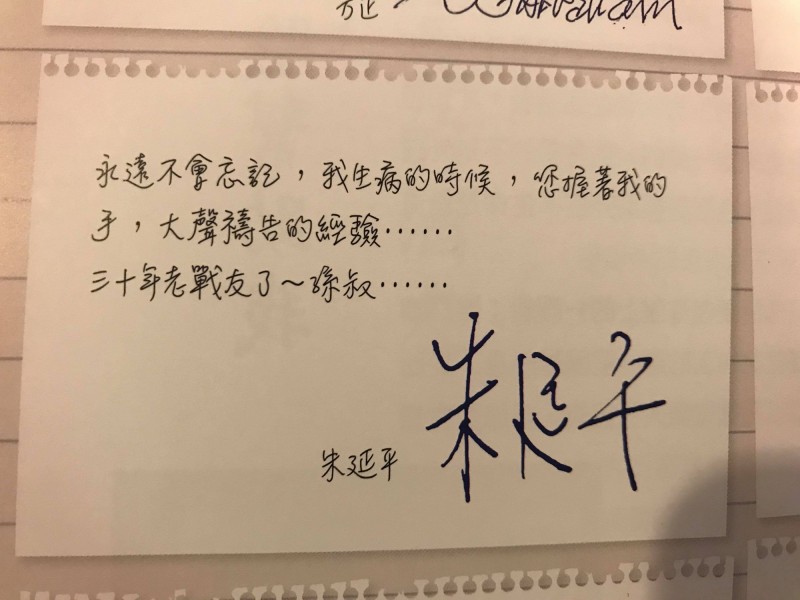 永遠不會忘記，我生病的時候，您握著我的
手，大聲禱告的經驗……
三十年老戰友了～孫叔……
朱延平
朱延平